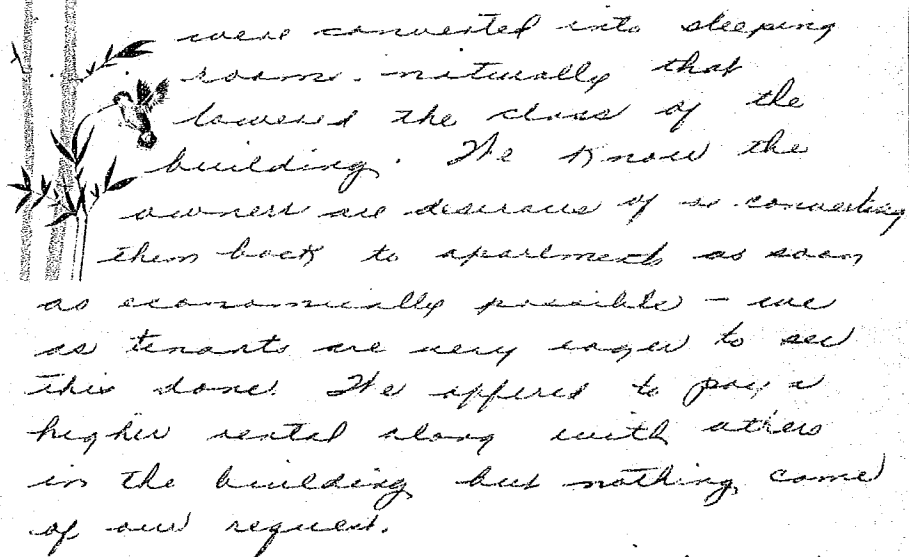 were converted into sleeping
rooms. naturally that
lowered the class of the
building. We know the
owners are desirous of re-converting
them back to apartments as soon
as economically possible - we
as tenants are very eager to see
this done. We offered to pay a
higher rental along with others
in the building but nothing came
of our request.